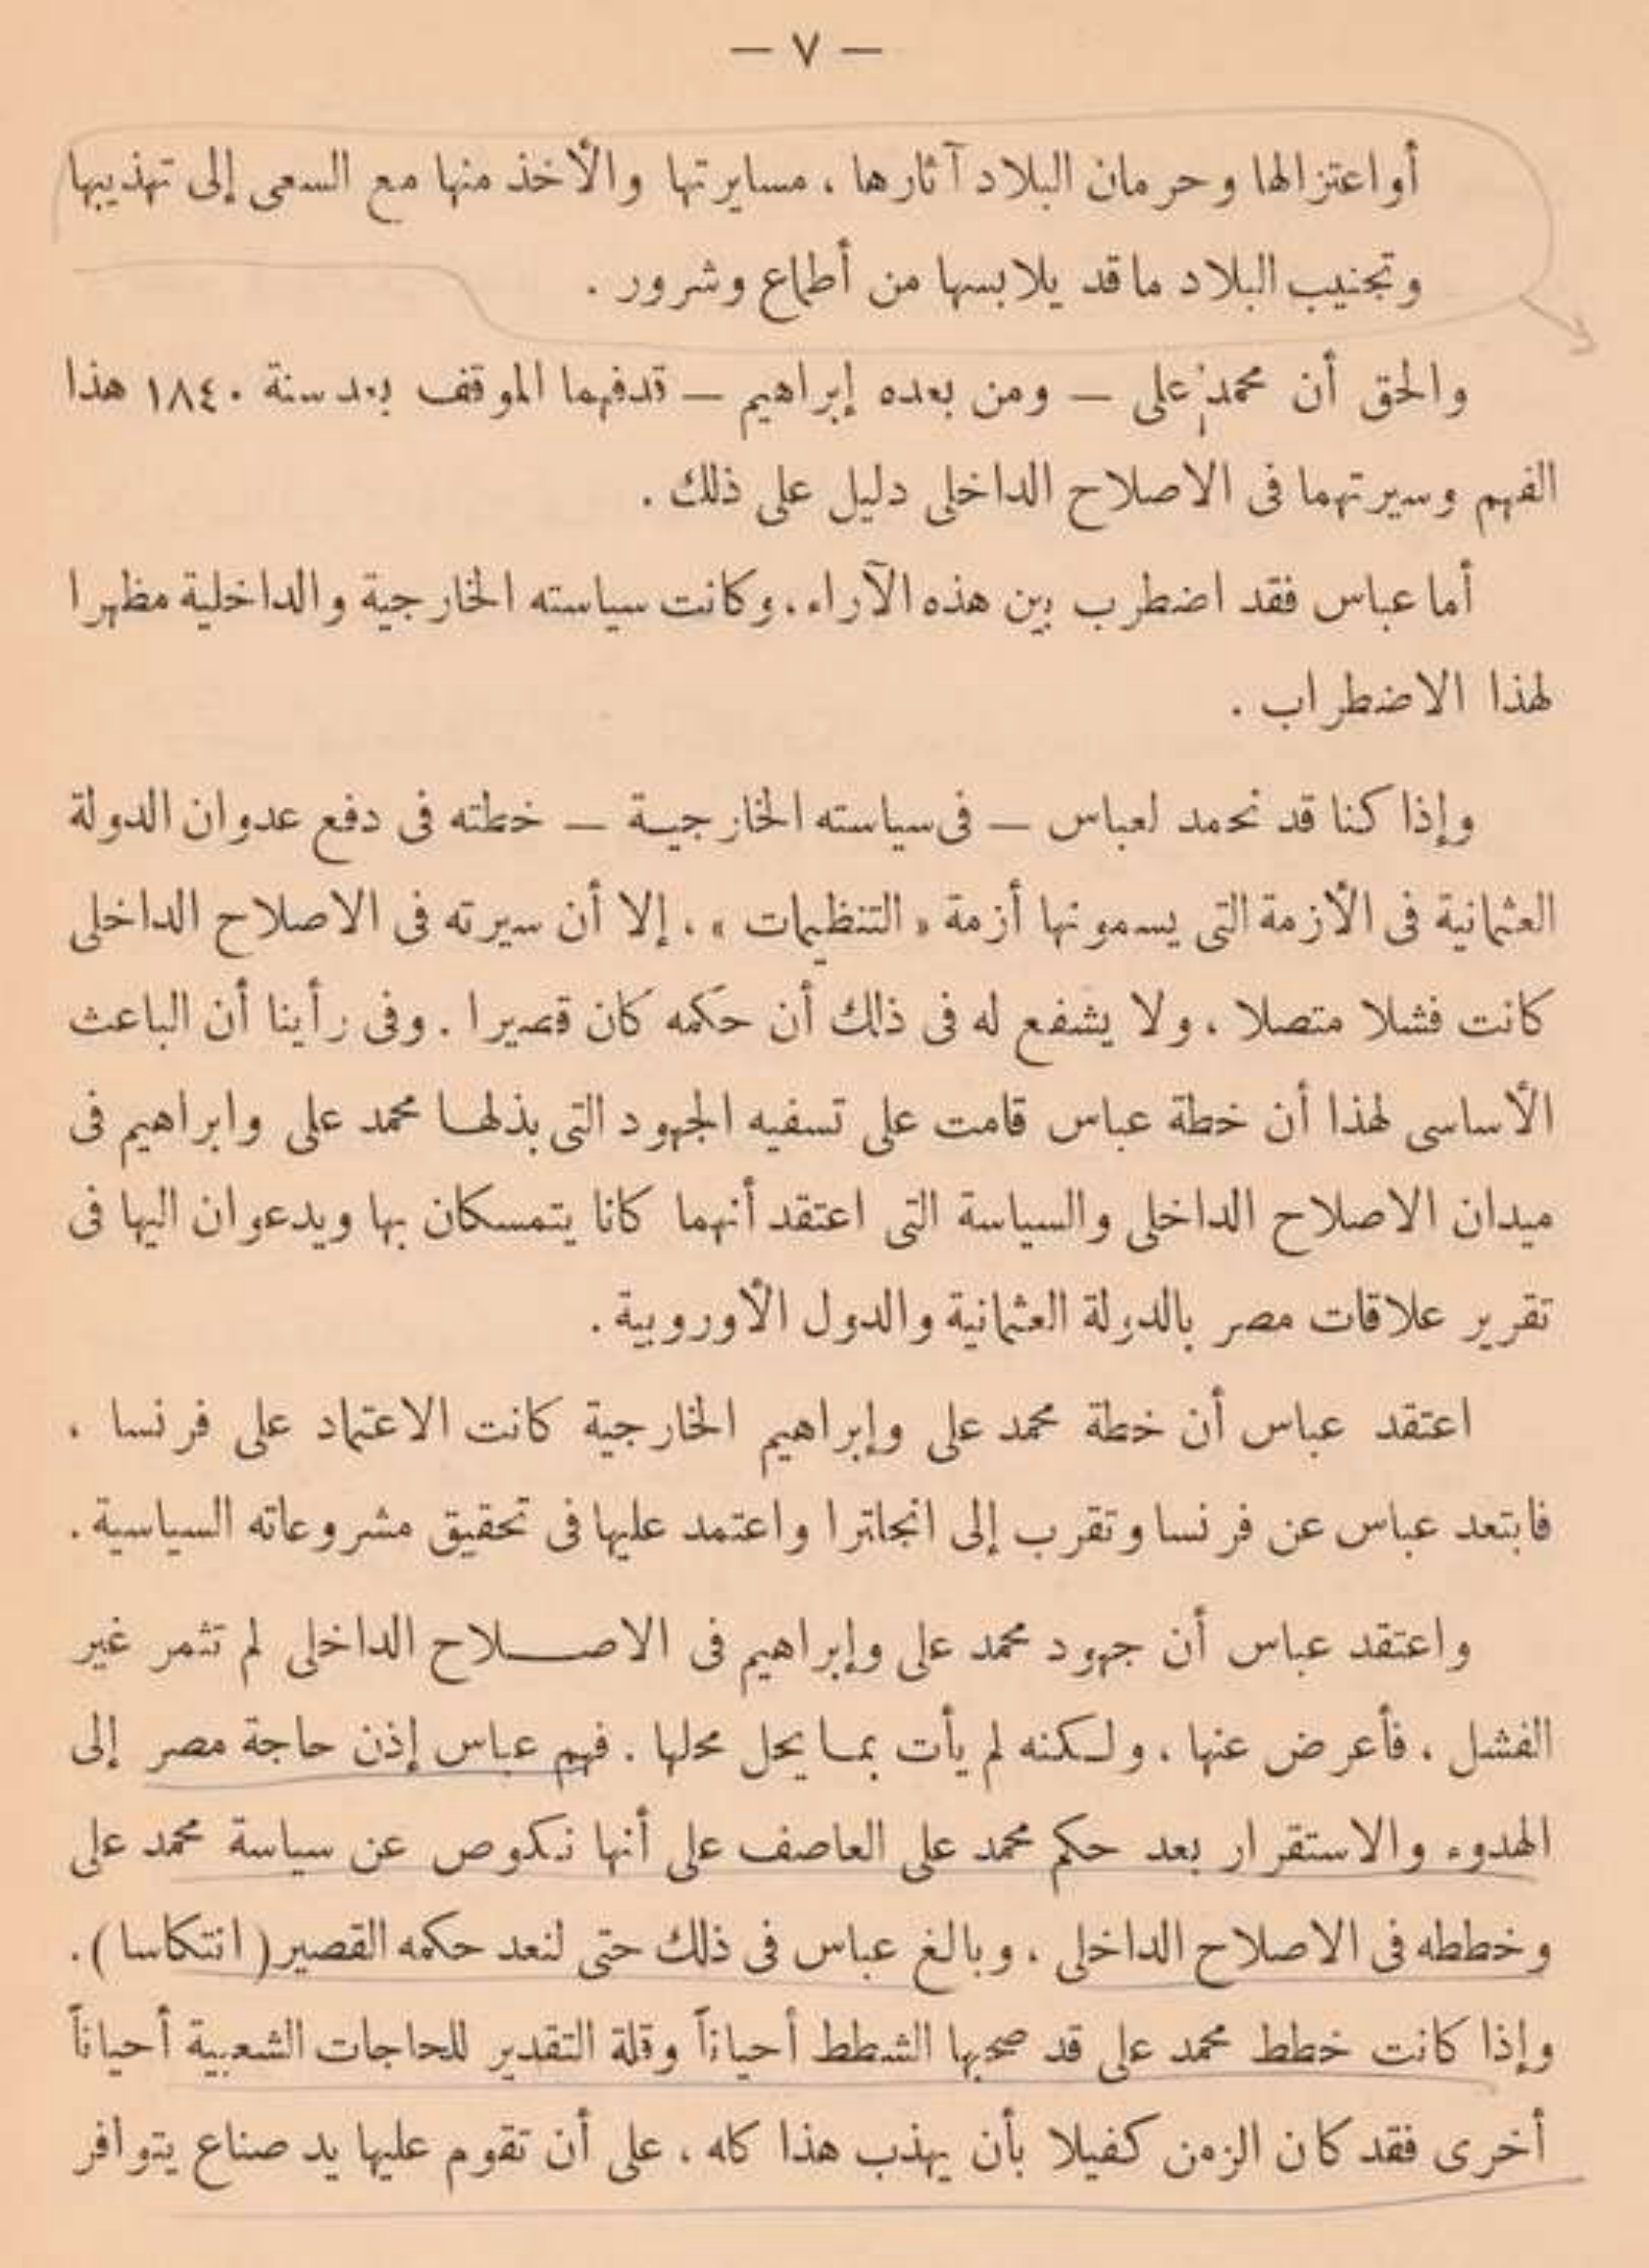 — ٧ —
أو اعتزالها وحرمان البلاد آثارها ، مسايرتها والأخذ منها مع السعى إلى تهذيبها
وتجنيب البلاد ماقد يلابسها من أطماع وشرور .
والحق أن محمد على — ومن بعده إبراهيم — قد فهما الموقف بعد سنة ١٨٤٠ هذا
الفهم وسيرتهما فى الاصلاح الداخلى دليل على ذلك .
أما عباس فقد اضطرب بين هذه الآراء ، وكانت سياسته الخارجية والداخلية مظهرا
لهذا الاضطراب .
وإذا كنا قد نحمد لعباس — فى سياسته الخارجية — خطته فى دفع عدوان الدولة
العثمانية فى الأزمة التى يسمونها أزمة « التنظيمات » ، إلا أن سيرته فى الاصلاح الداخلى
كانت فشلا متصلا ، ولا يشفع له فى ذلك أن حكمه كان قصيرا . وفى رأينا أن الباعث
الأساسى لهذا أن خطة عباس قامت على تسفيه الجهود التى بذلها محمد على وابراهيم فى
ميدان الاصلاح الداخلى والسياسة التى اعتقد أنهما كانا يتمسكان بها ويدعوان اليها فى
تقرير علاقات مصر بالدولة العثمانية والدول الأوروبية .
اعتقد عباس أن خطة محمد على وإبراهيم الخارجية كانت الاعتماد على فرنسا ،
فابتعد عباس عن فرنسا وتقرب إلى انجلترا واعتمد عليها فى تحقيق مشروعاته السياسية .
واعتقد عباس أن جهود محمد على وإبراهيم فى الاصلاح الداخلى لم تثمر غير
الفشل ، فأعرض عنها ، ولكنه لم يأت بما يحل محلها . فهم عباس إذن حاجة مصر إلى
الهدوء والاستقرار بعد حكم محمد على العاصف على أنها نكوص عن سياسة محمد على
وخططه فى الاصلاح الداخلى ، وبالغ عباس فى ذلك حتى لنعد حكمه القصير ( انتكاسا ) .
وإذا كانت خطط محمد على قد صحبها الشطط أحياناً وقلة التقدير للحاجات الشعبية أحياناً
أخرى فقد كان الزمن كفيلا بأن يهذب هذا كله ، على أن تقوم عليها يد صناع يتوافر